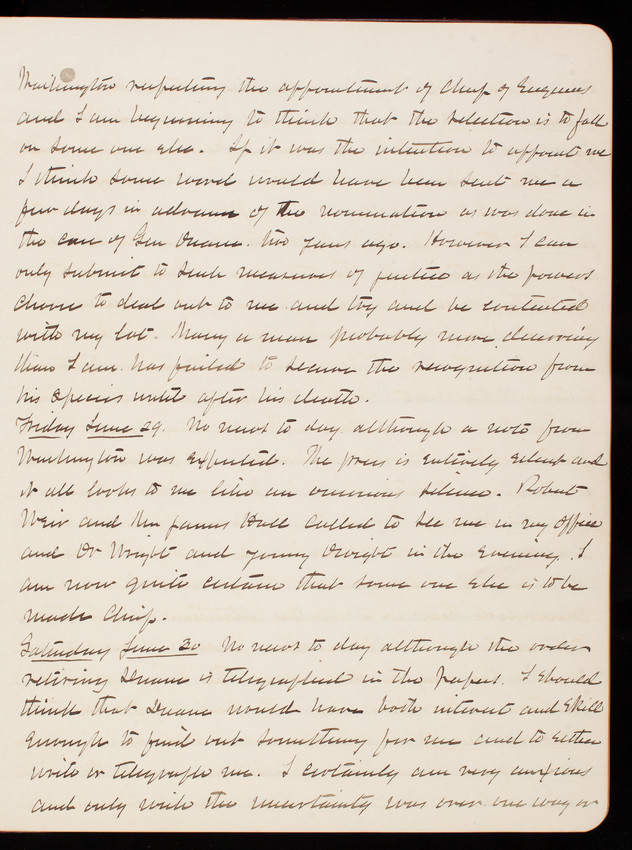 Washington respecting the appointment of Chief of Engineers
and I am beginning to think that the selection is to fall
on some one else. If it was the intention to appoint me
I think some word would have been sent me a
few days in advance of the nomination as was done in
the case of Gen Duane two years ago. However I can
only submit to such measures of justice as the powers
choose to deal out to me and try and be contented
with my lot. Many a man probably more deserving
than I am has failed to secure the recognition from
his species until after his death.
Friday June 29. No news to day although a note from
Washington was expected. The press is entirely silent and
it all looks to me like an ominous silence. Robert
Weir and Mr James Hall called to see me in my office
and Dr Wright and young Dwight in the evening. I
am now quite certain that some one else is to be
made Chief.
Saturday June 30 No news to day although the order
retiring Duane is telegraphed in the papers. I should
think that Duane would have both interest and skill
enough to find out something for me and to either
write or telegraph me. I certainly am very anxious
and only wish the uncertainty was over one way or